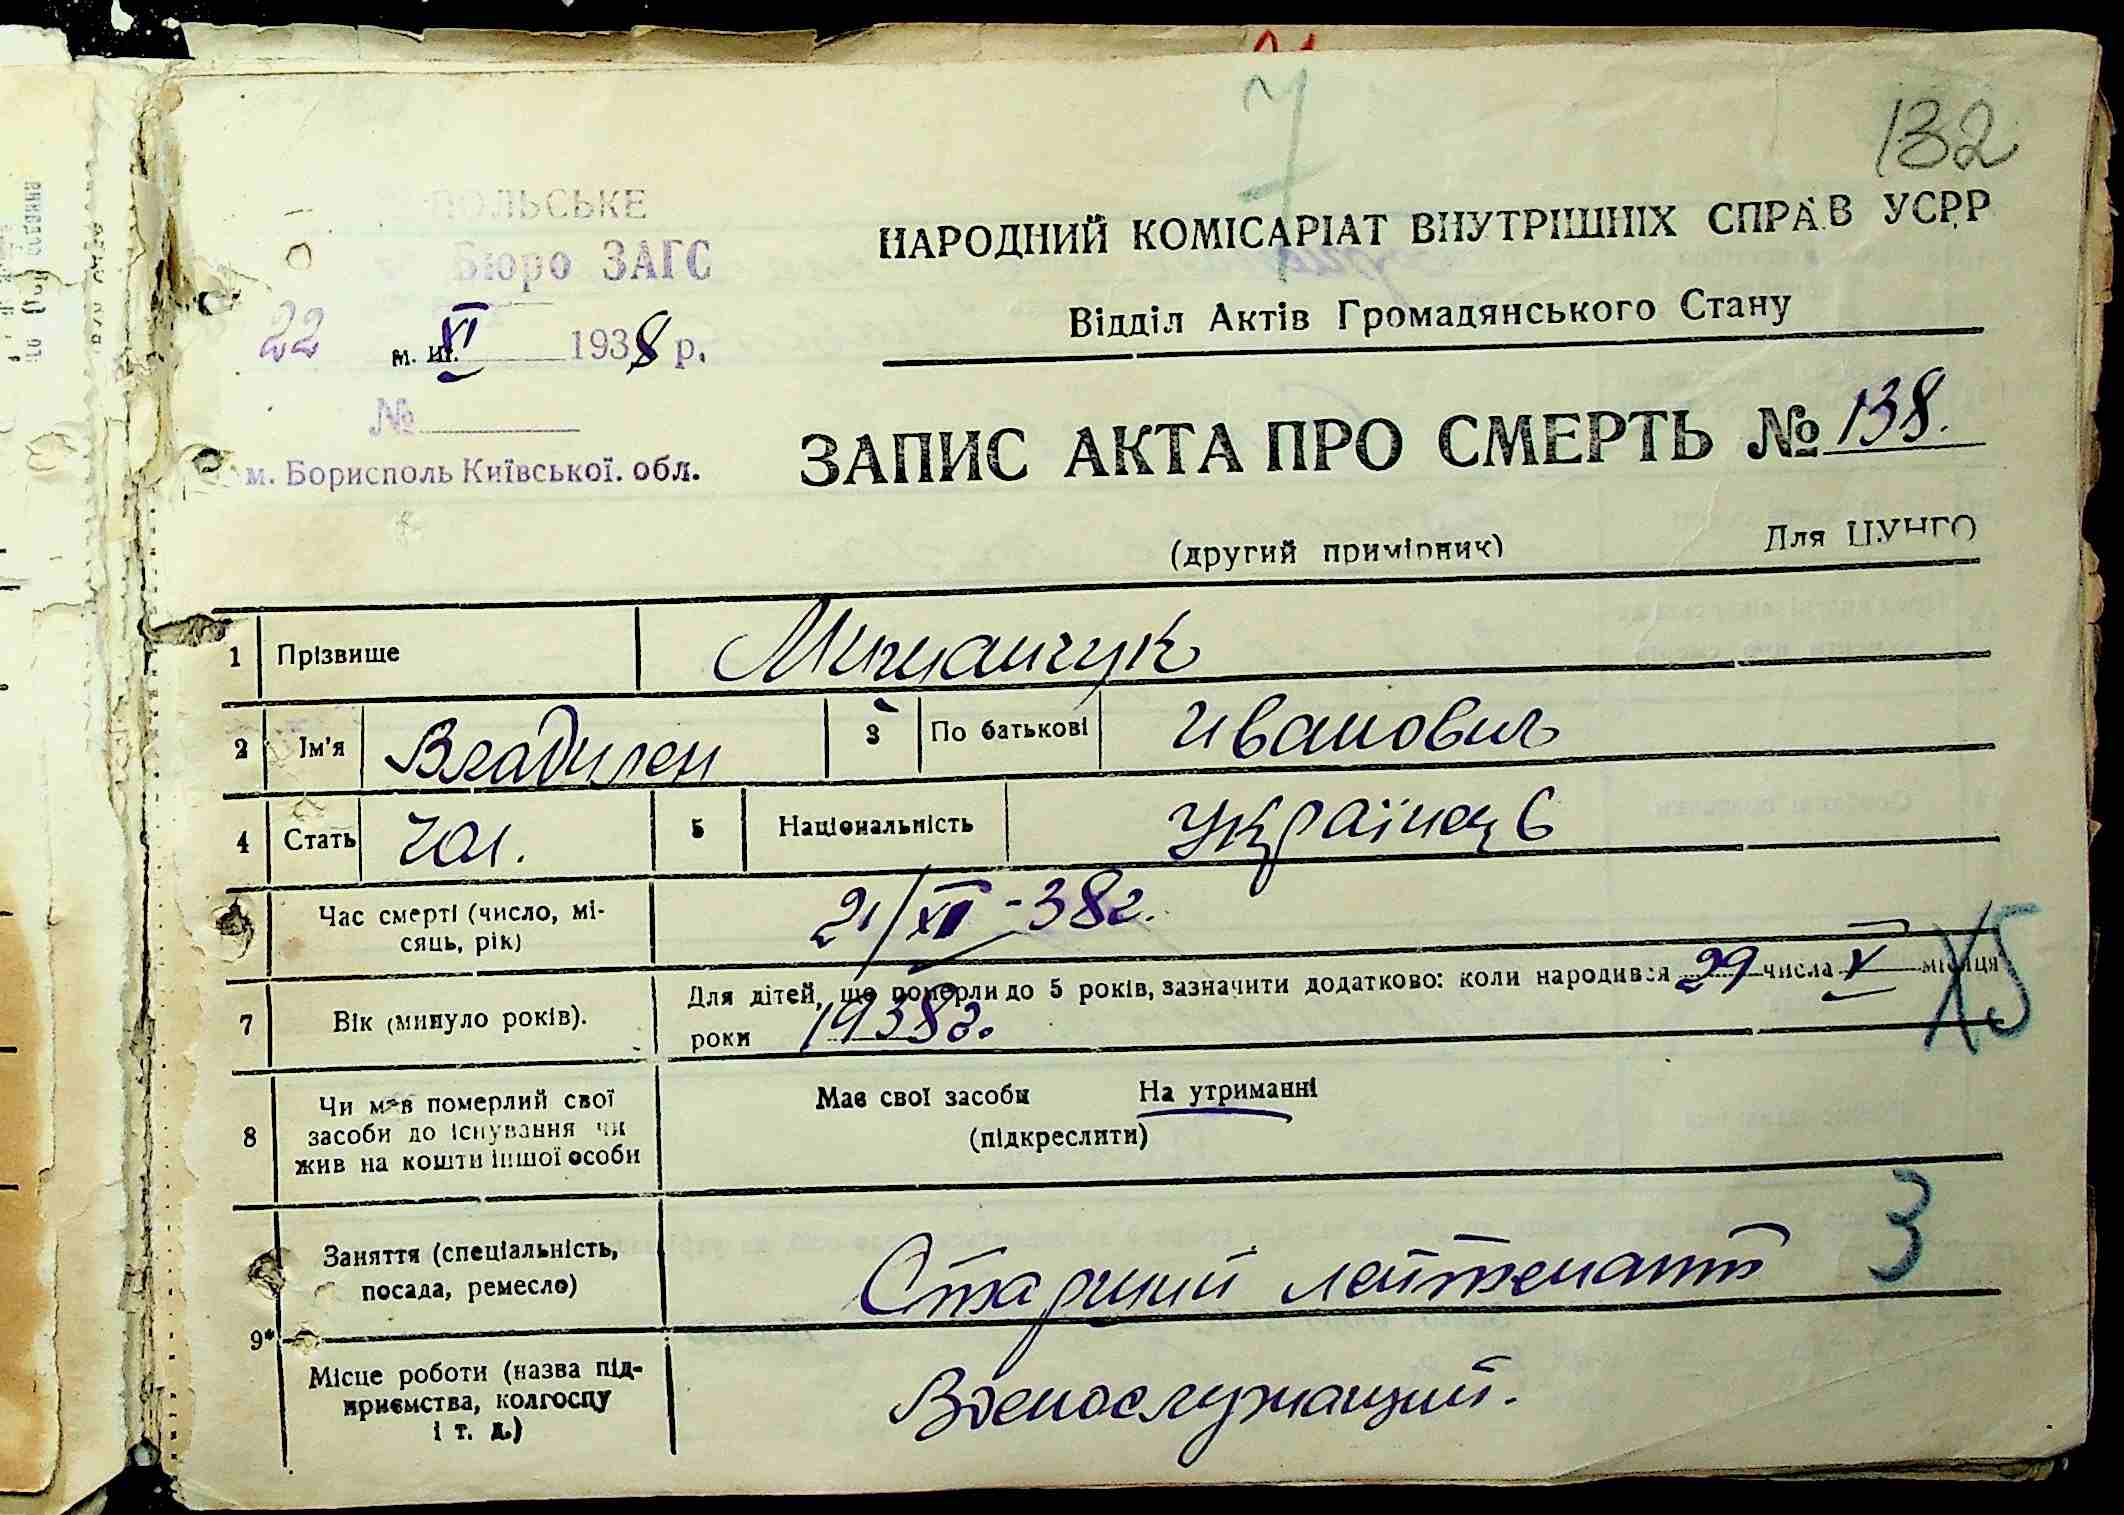 7
132
ПОЛЬСЬКЕ
Бюро ЗАГС
22 м. XI 1938 р.
№
м. Борисполь Київської. обл.
НАРОДНИЙ КОМІСАРІАТ ВНУТРІШНІХ СПРАВ УСРР
Відділ Актів Громадянського Стану
ЗАПИС АКТА ПРО СМЕРТЬ № 138.
(другий примірник)
Для ЦУНГО
1 Прізвище
2 Ім'я Владилен 3 По батькові Иванович
4 Стать чол. 5 Національність Українец
Час смерті (число, мі-
сяць, рік)
21/XI - 38г.
7 Вік (минуло років).
Для дітей, що померли до 5 років, зазначити додатково: коли народився 29 числа V місяця
роки 1938г.
X5
8 Чи мав померлий свої
засоби до існування чи
жив на кошти іншої особи
Має свої засоби На утриманні
(підкреслити)
9* Заняття (спеціальність,
посада, ремесло)
Старший лейтенант
3
Місце роботи (назва під-
приємства, колгоспу
і т. д.)
Военослужащий.